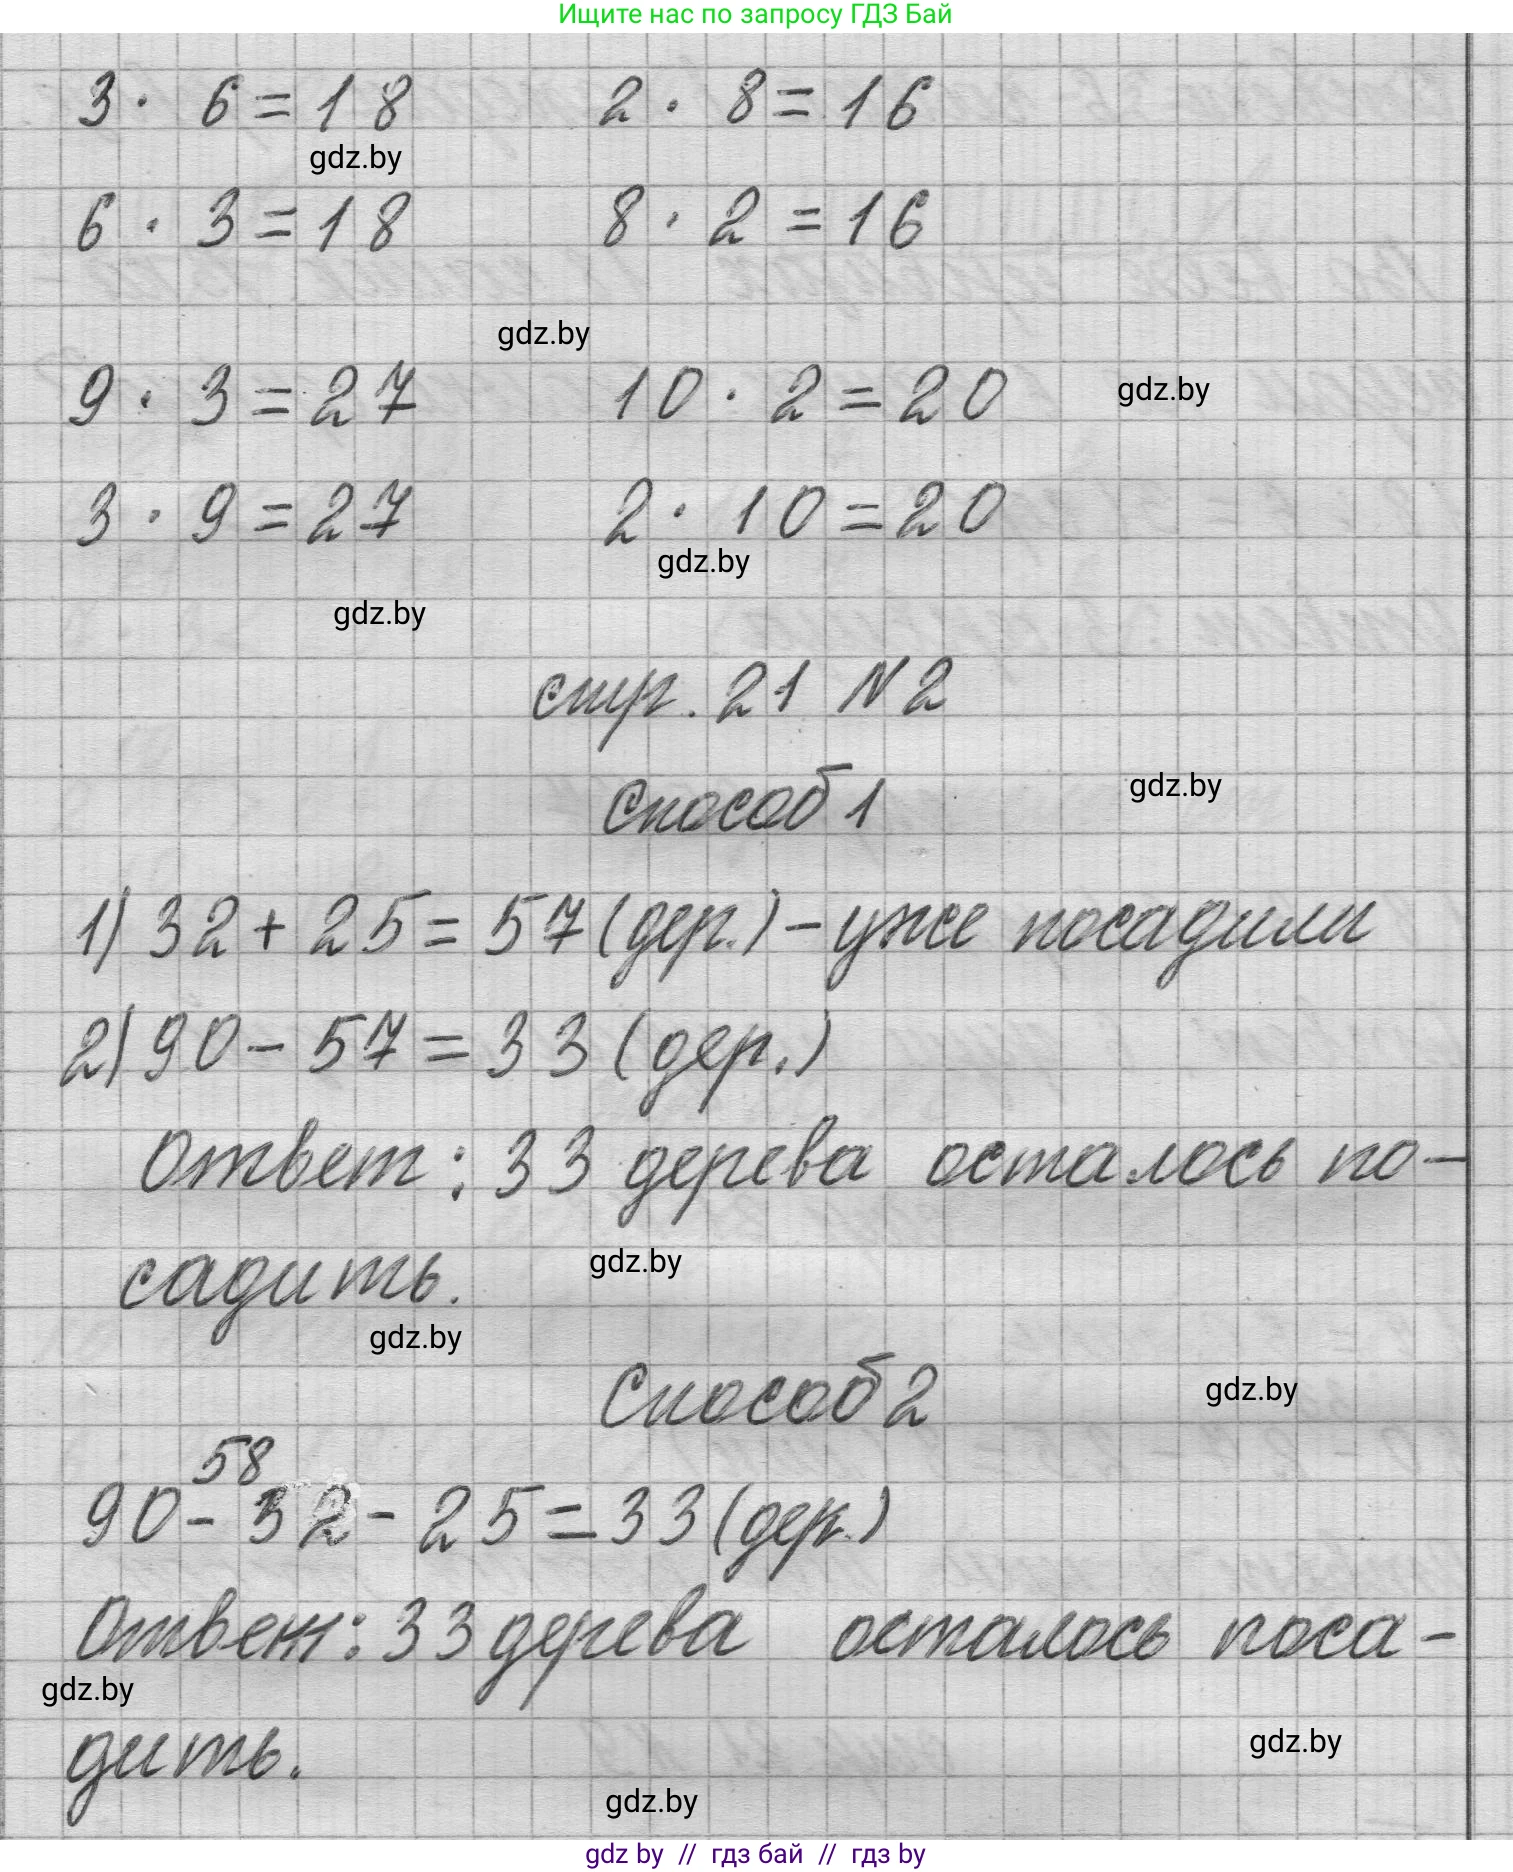 Ищите нас по запросу ГДЗ Бай
3 · 6 = 18 2 · 8 = 16
gdz.by
6 · 3 = 18 8 · 2 = 16
gdz.by
9 · 3 = 27 10 · 2 = 20 gdz.by
3 · 9 = 27 2 · 10 = 20
gdz.by
gdz.by
стр. 21 N 2
Способ 1 gdz.by
1) 32 + 25 = 57 (дер.) – уже посадили
2) 90 – 57 = 33 (дер.)
Ответ: 33 дерева осталось по-
садить. gdz.by
gdz.by
Способ 2 gdz.by
58
90 – 32 – 25 = 33 (дер.)
Ответ: 33 дерева осталось поса-
gdz.by
дить. gdz.by
gdz.by
gdz by // гдз бай // гдз by